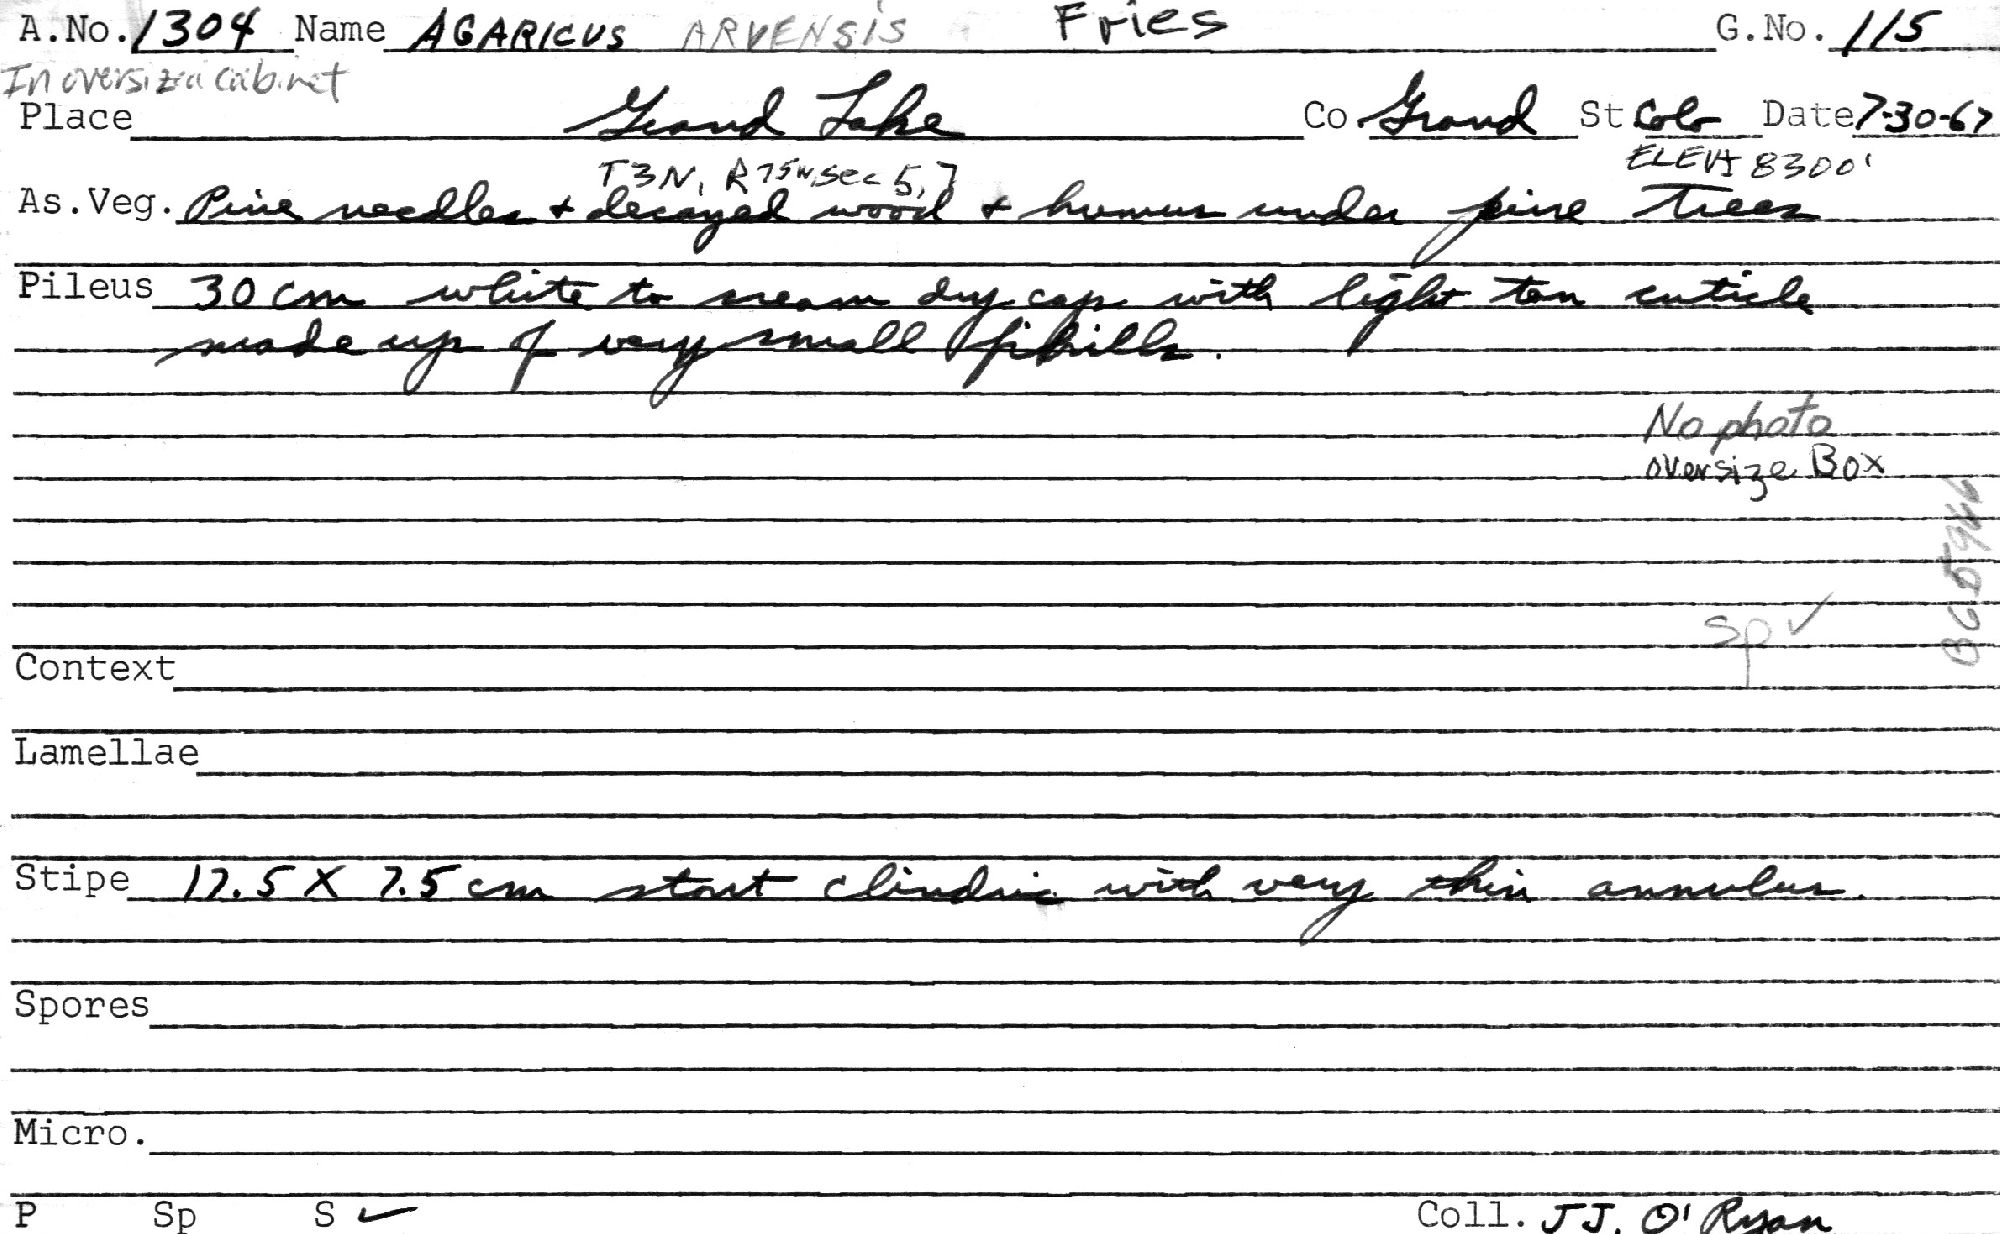 A.No. 1304 Name AGARICUS ARVENSIS Fries G.No. 115
In oversized cabinet
Place Grand Lake Co. Grand St Colo Date 7-30-67
T3N, R75W, Sec 5, 7 ELEV 8300'
As.Veg. Pine needles + decayed wood + humus under pine Trees
Pileus 30 cm white to cream dry cap with light tan cuticle
made up of very small fibrills.
No photo
oversize Box
Sp ✓
Context
Lamellae
Stipe 17.5 X 7.5 cm stout clindric with very thin annulus.
Spores
Micro.
P Sp S ✓ Coll. J J. O'Ryan